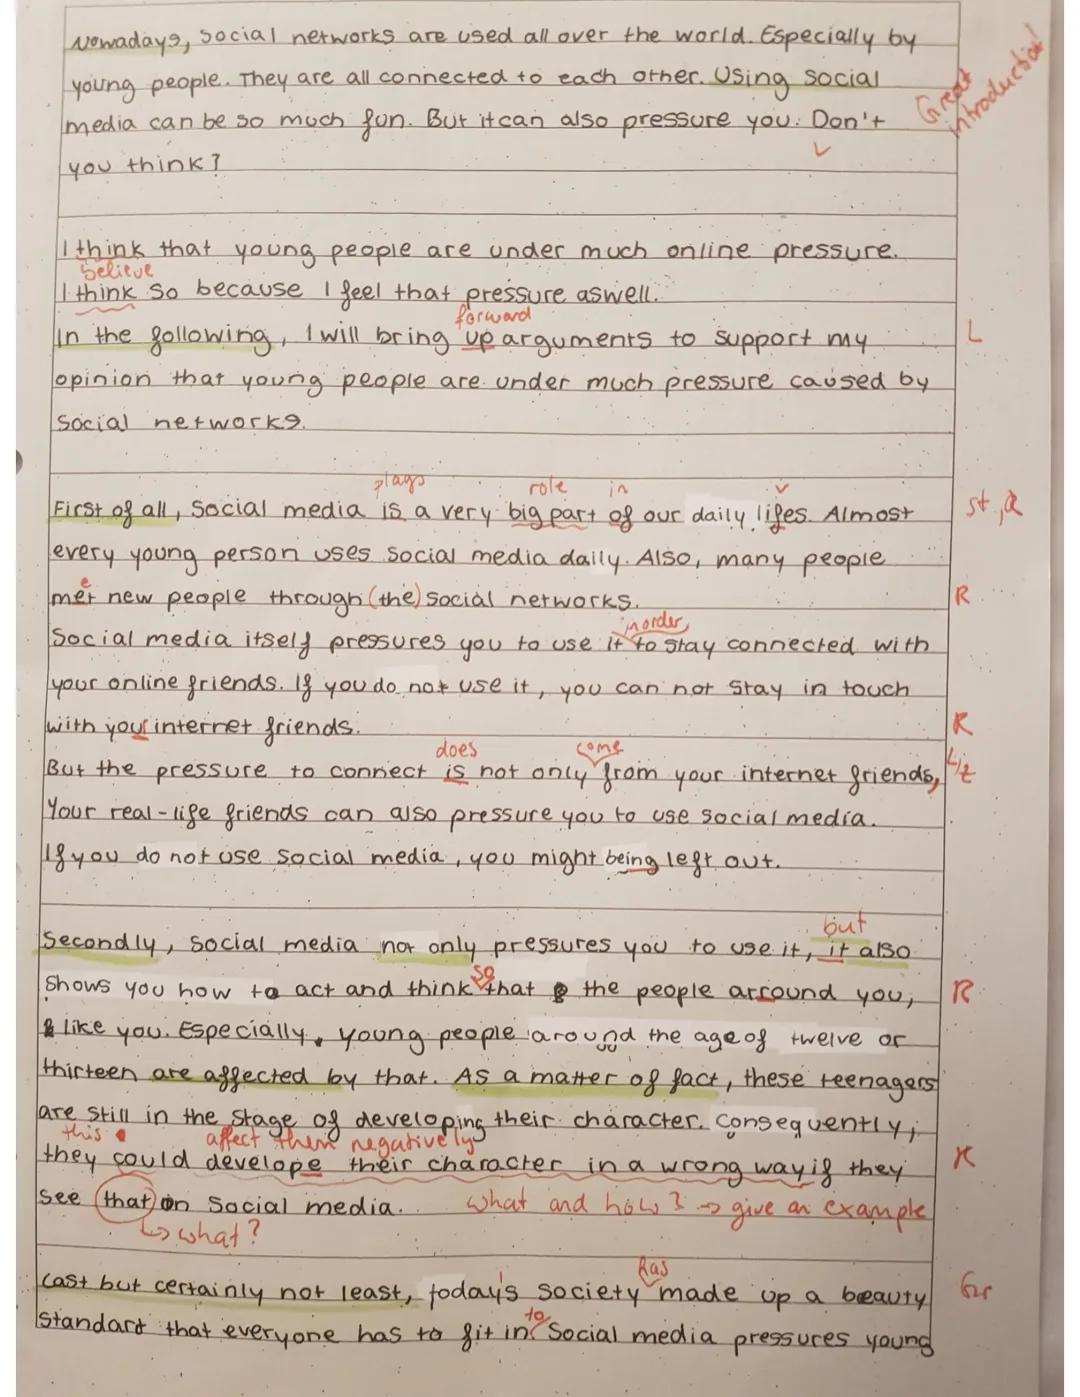 Nowadays, social networks are used all over the world. Especially by
young people. They are all connected to each other. Using social
media can be so much fun. But it can also pressure you. Don't
you think?
Great introduction!
I think that young people are under much online pressure.
believe
I think so because I feel that pressure aswell.
forward
In the following, I will bring up arguments to support my
L
opinion that young people are under much pressure caused by
social networks.
plays role in
First of all, social media is a very big part of our daily lifes. Almost
st, R
every young person uses social media daily. Also, many people
e
met new people through (the) social networks.
R
in order
Social media itself pressures you to use it to stay connected with
your online friends. If you do not use it, you can not stay in touch
with your internet friends.
R
does come
But the pressure to connect is not only from your internet friends,
L, Z
Your real-life friends can also pressure you to use social media.
If you do not use social media, you might being left out.
but
Secondly, social media not only pressures you to use it, it also
so
shows you how to act and think that the people arround you,
R
like you. Especially, young people around the age of twelve or
thirteen are affected by that. As a matter of fact, these teenagers
are still in the stage of developing their character. Consequently,
this affect them negatively
they could develope their character in a wrong way if they
K
see (that) on social media.
what and how? → give an example
↳ what?
has
Last but certainly not least, today's society made up a beauty
Gr
to
standart that everyone has to fit in. Social media pressures young